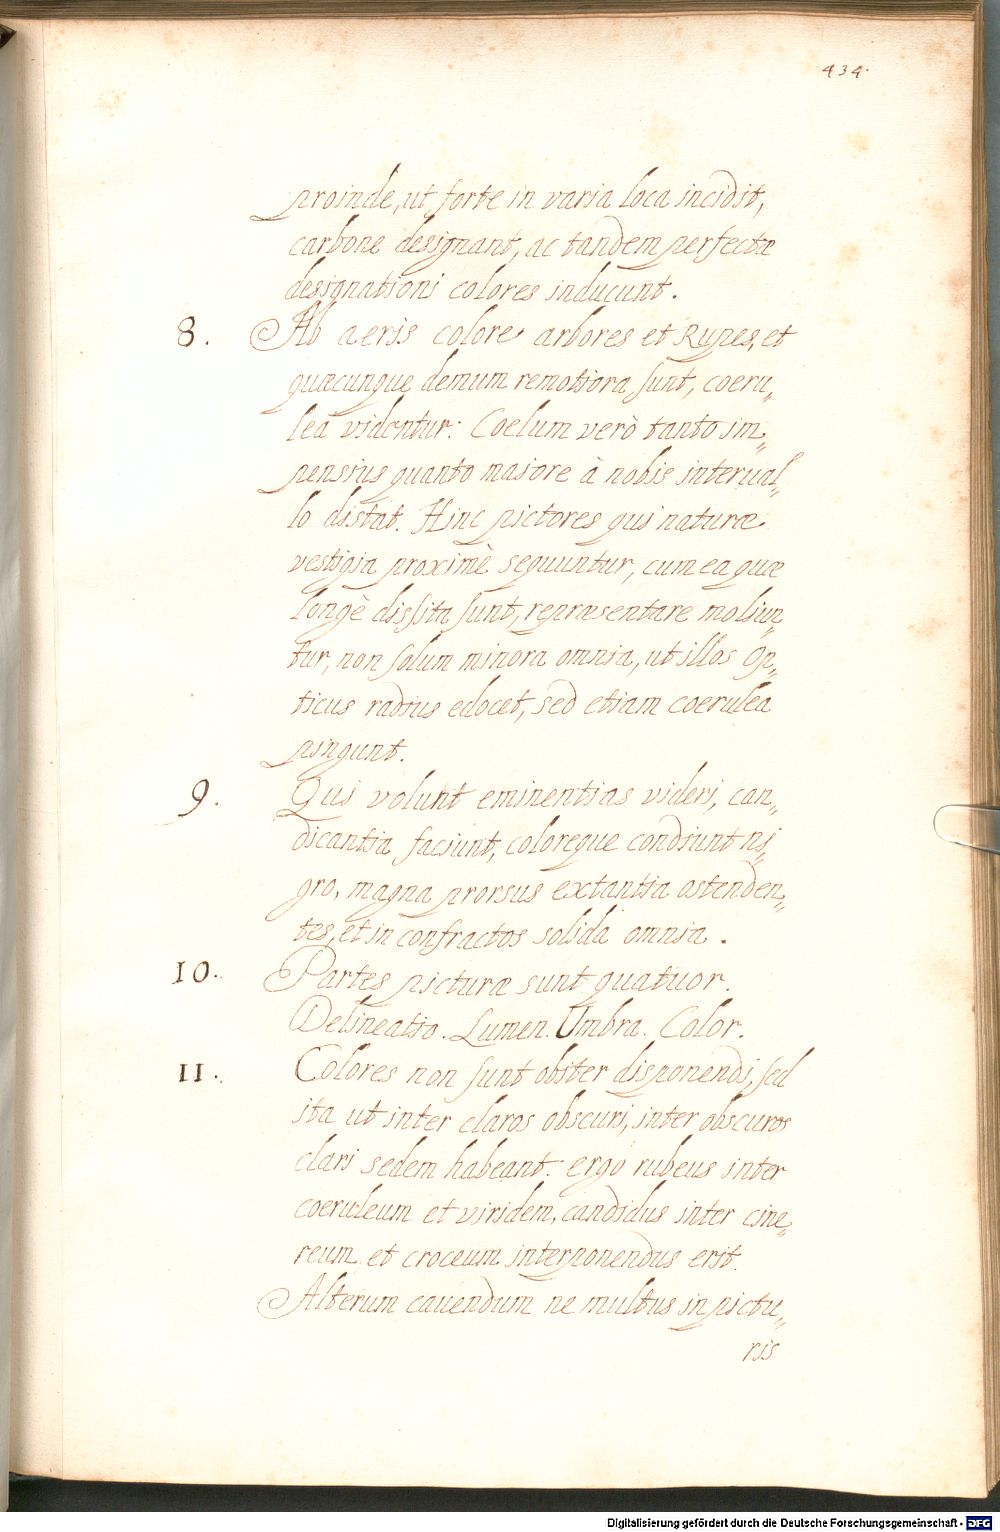 434.
proinde, ut forte in varia loca incidit,
carbone designant, ac tandem perfectæ
designationi colores inducunt.
8. Ab aeris colore arbores et Rupes, et
quæcunque demum remotiora sunt, coeru„
lea videntur: Coelum verò tanto im„
pensius quanto maiore à nobis interual„
lo distat. Hinc pictores qui naturæ
vestigia proximè sequuntur, cum ea quæ
longè dissita sunt, repræsentare moliun„
tur, non solum minora omnia, ut illos Op„
ticus radius edocet, sed etiam coerulea
pingunt.
9. Qui volunt eminentias videri, can„
dicantia faciunt, coloreque condiunt ni„
gro, magna prorsus extantia ostenden„
tes, et in confractos solida omnia.
10. Partes picturæ sunt quatuor.
Delineatio. Lumen. Umbra. Color.
11. Colores non sunt obiter disponendi, sed
ita ut inter claros obscuri, inter obscuros
clari sedem habeant: ergo rubeus inter
coeruleum et viridem, candidus inter cine„
reum et croceum interponendus erit.
Alterum cauendum ne multus in pictu„
ris
Digitalisierung gefördert durch die Deutsche Forschungsgemeinschaft - DFG